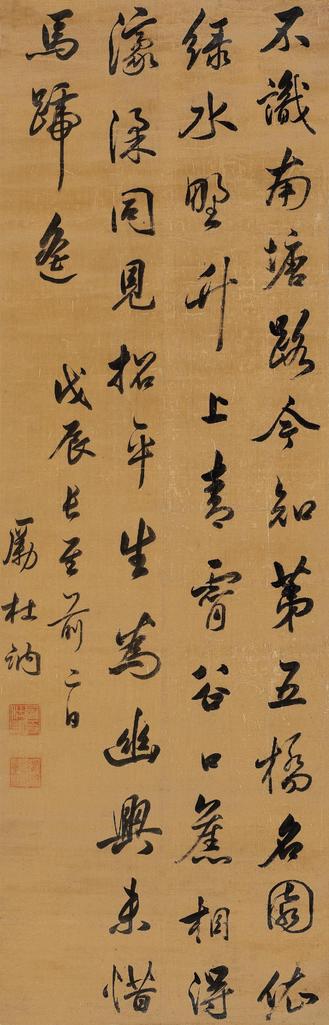 不識南塘路今知第五橋名園依
綠水野竹上青霄谷口舊相得
濠梁同見招平生為幽興未惜
馬蹄遙
戊辰長至前二日
勵杜訥